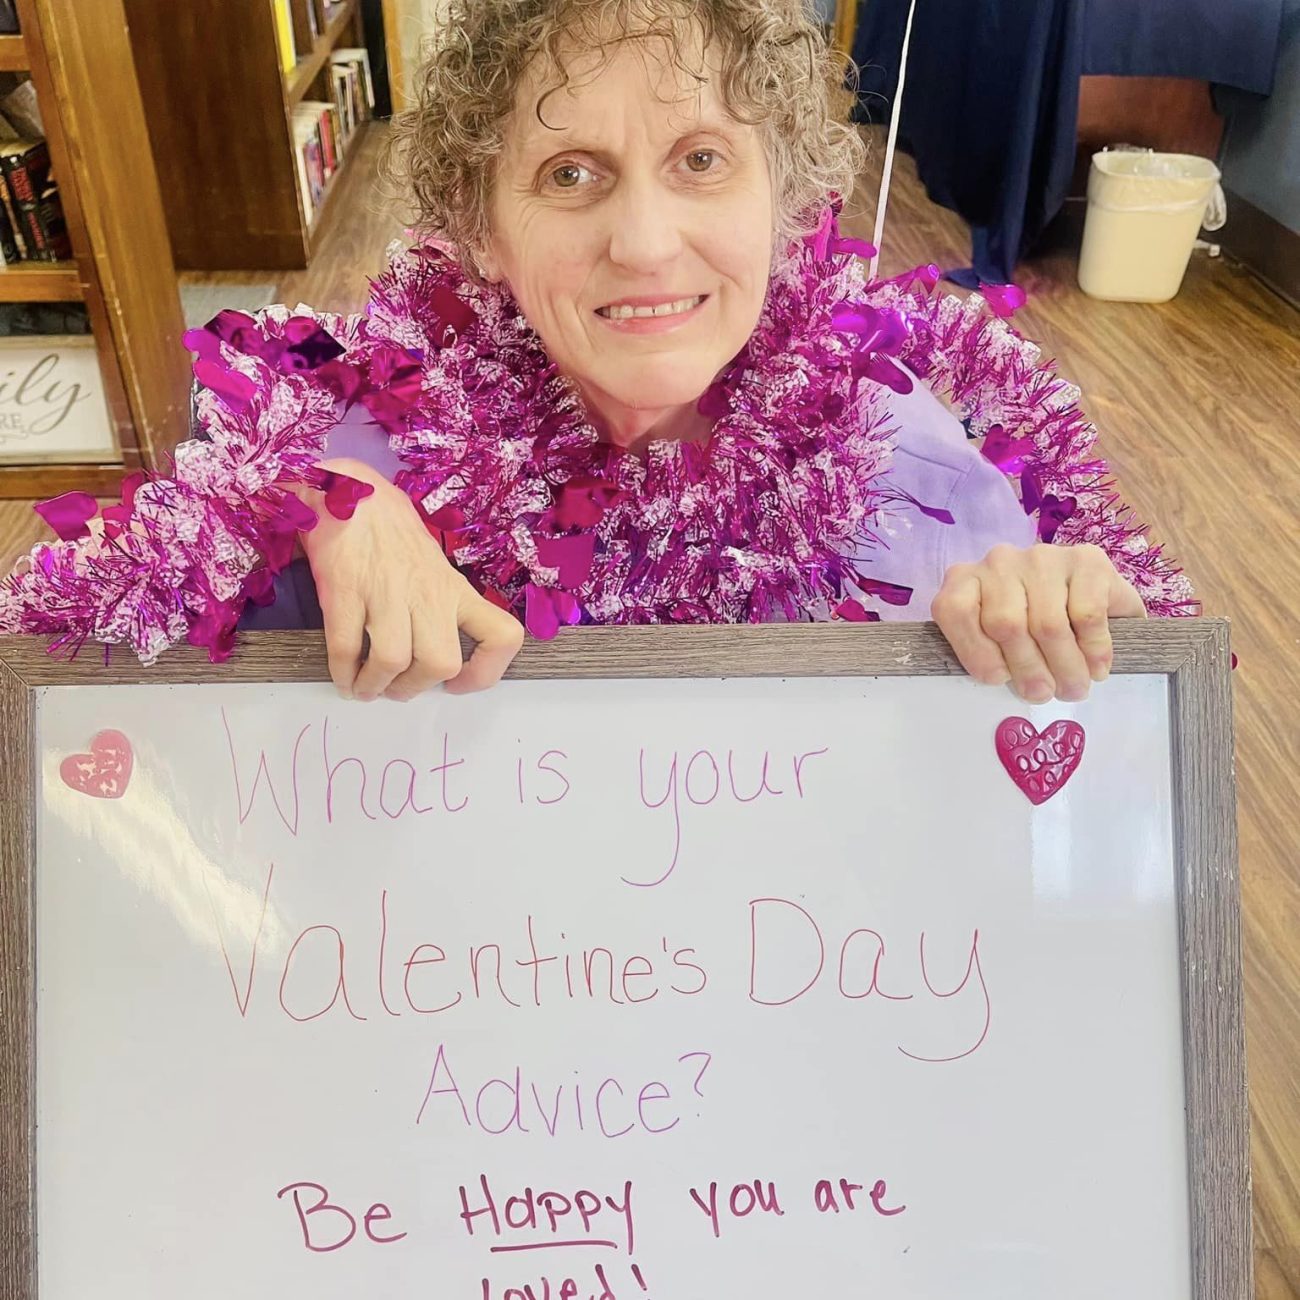 ily
RE
What is your
Valentine's Day
Advice?
Be Happy you are
loved!